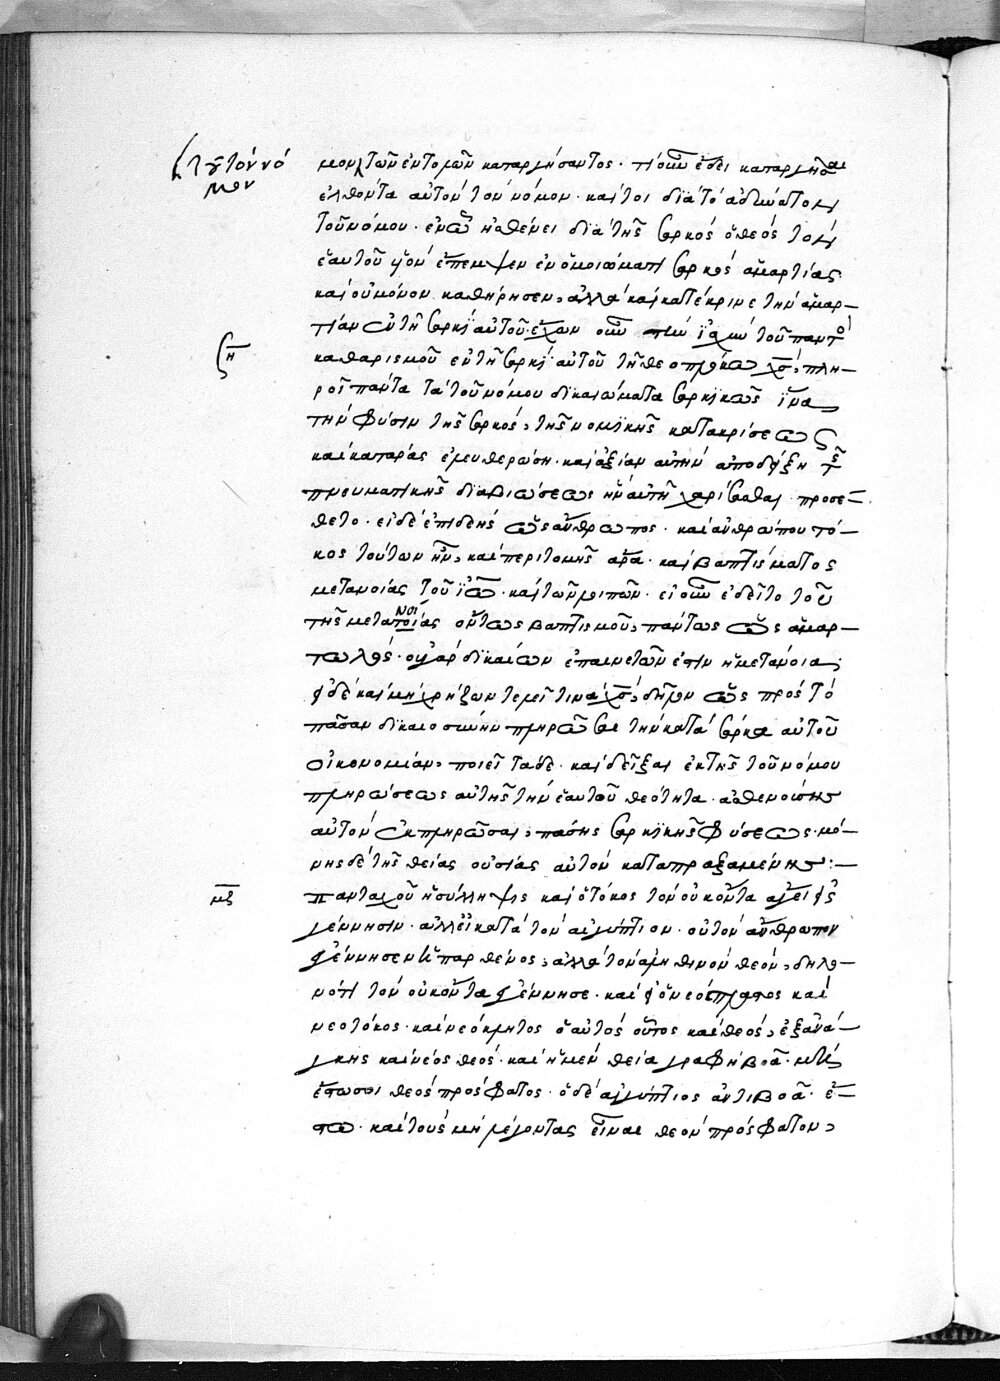 τοῦτον νό
μον
μον τῶν ἐντολῶν καταργήσαντος· τί οὖν ἔδει καταργῆσαι
ἐλθόντα αὐτὸν τὸν νόμον· καίτοι διὰ τὸ ἀδύνατον
τοῦ νόμου· ἐν ᾧ ἠσθένει διὰ τῆς σαρκός ὁ θεός τὸν
ἑαυτοῦ υἱὸν ἔπεμψεν ἐν ὁμοιώματι σαρκός ἁμαρτίας
καὶ οὐ μόνον καθήρησεν, ἀλλὰ καὶ κατέκρινε τὴν ἁμαρ–
τίαν ἐν τῇ σαρκὶ αὐτοῦ· ἔχων οὖν τὴν ἰσχὺν τοῦ παντὸς
η
καθαρισμοῦ ἐν τῇ σαρκὶ αὐτοῦ τῇ θεοπρόκῳ χς, πλη–
ροῖ πάντα τὰ τοῦ νόμου δικαιώματα σαρκικῶς ἵνα
τὴν φύσιν τῆς σαρκός, τῆς νομικῆς κατακρίσεως
καὶ κατάρας ἐλευθερώσῃ· καὶ ἀξίαν αὐτὴν ἀποδείξῃ τῆς
πνευματικῆς διαβιώσεως ἣν αὐτῇ χαρίσασθαι προσέ–
θετο· εἰ δὲ ἐπιδεής ὡς ἄνθρωπος· καὶ ἀνθρώπου τό–
κος τούτων ἦν, καὶ περιτομῆς ἄρα· καὶ βαπτίσματος
μετανοίας τοῦ ἰω· καὶ τῶν λοιπῶν· εἰ οὖν ἐδεῖτο τοῦ
τῆς μετανοίας ὄντως βαπτισμοῦ, πάντως ὡς ἁμαρ–
τωλός· οὐ γὰρ δικαίων ἐπαινετῶν ἐστιν ἡ μετάνοια,
εἰ δὲ καὶ μὴ χρήζων τελεῖ τινα χς, δῆλον ὡς πρὸς τὸ
πᾶσαν δικαιοσύνην πληρῶσαι τὴν κατὰ σάρκα αὐτοῦ
οἰκονομίαν, ποιεῖ τάδε· καὶ δεῖξαι ἐκ τῆς τοῦ νόμου
πληρώσεως αὐτῆς τὴν ἑαυτοῦ θεότητα· ἀσθενούσης
αὐτὸν ἐκπληρῶσαι, πάσης σαρκικῆς φύσεως· μό–
νης δὲ τῆς θείας οὐσίας αὐτὸν καταπραξαμένης:–
μζ
πανταχοῦ ἡ σύλληψις καὶ ὁ τόκος τὸν οὐκ ὄντα ἄγει εἰς
γέννησιν· ἀλλ' εἰ κατὰ τὸν αἰγύπτιον· οὐ τὸν ἄνθρωπον
ἐγέννησεν ἡ παρθένος, ἀλλὰ τὸν ἀληθινὸν θεόν, δηλο–
νότι τὸν οὐκ ὄντα ἐγέννησε· καὶ
νεότοκος· καὶ νεόκμητος ὁ αὐτός οὗτος καὶ θεός, ἐξ ἀνά–
γκης καὶ νέος θεός· καὶ ἡ μὲν θεία γραφὴ βοᾷ·
ἔσωσοι θεός πρόσφατος· ὁ δὲ αἰγύπτιος ἀντιβοᾷ· ἔ–
στω· καὶ τοὺς μὴ λέγοντας εἶναι θεὸν πρόσφατον,